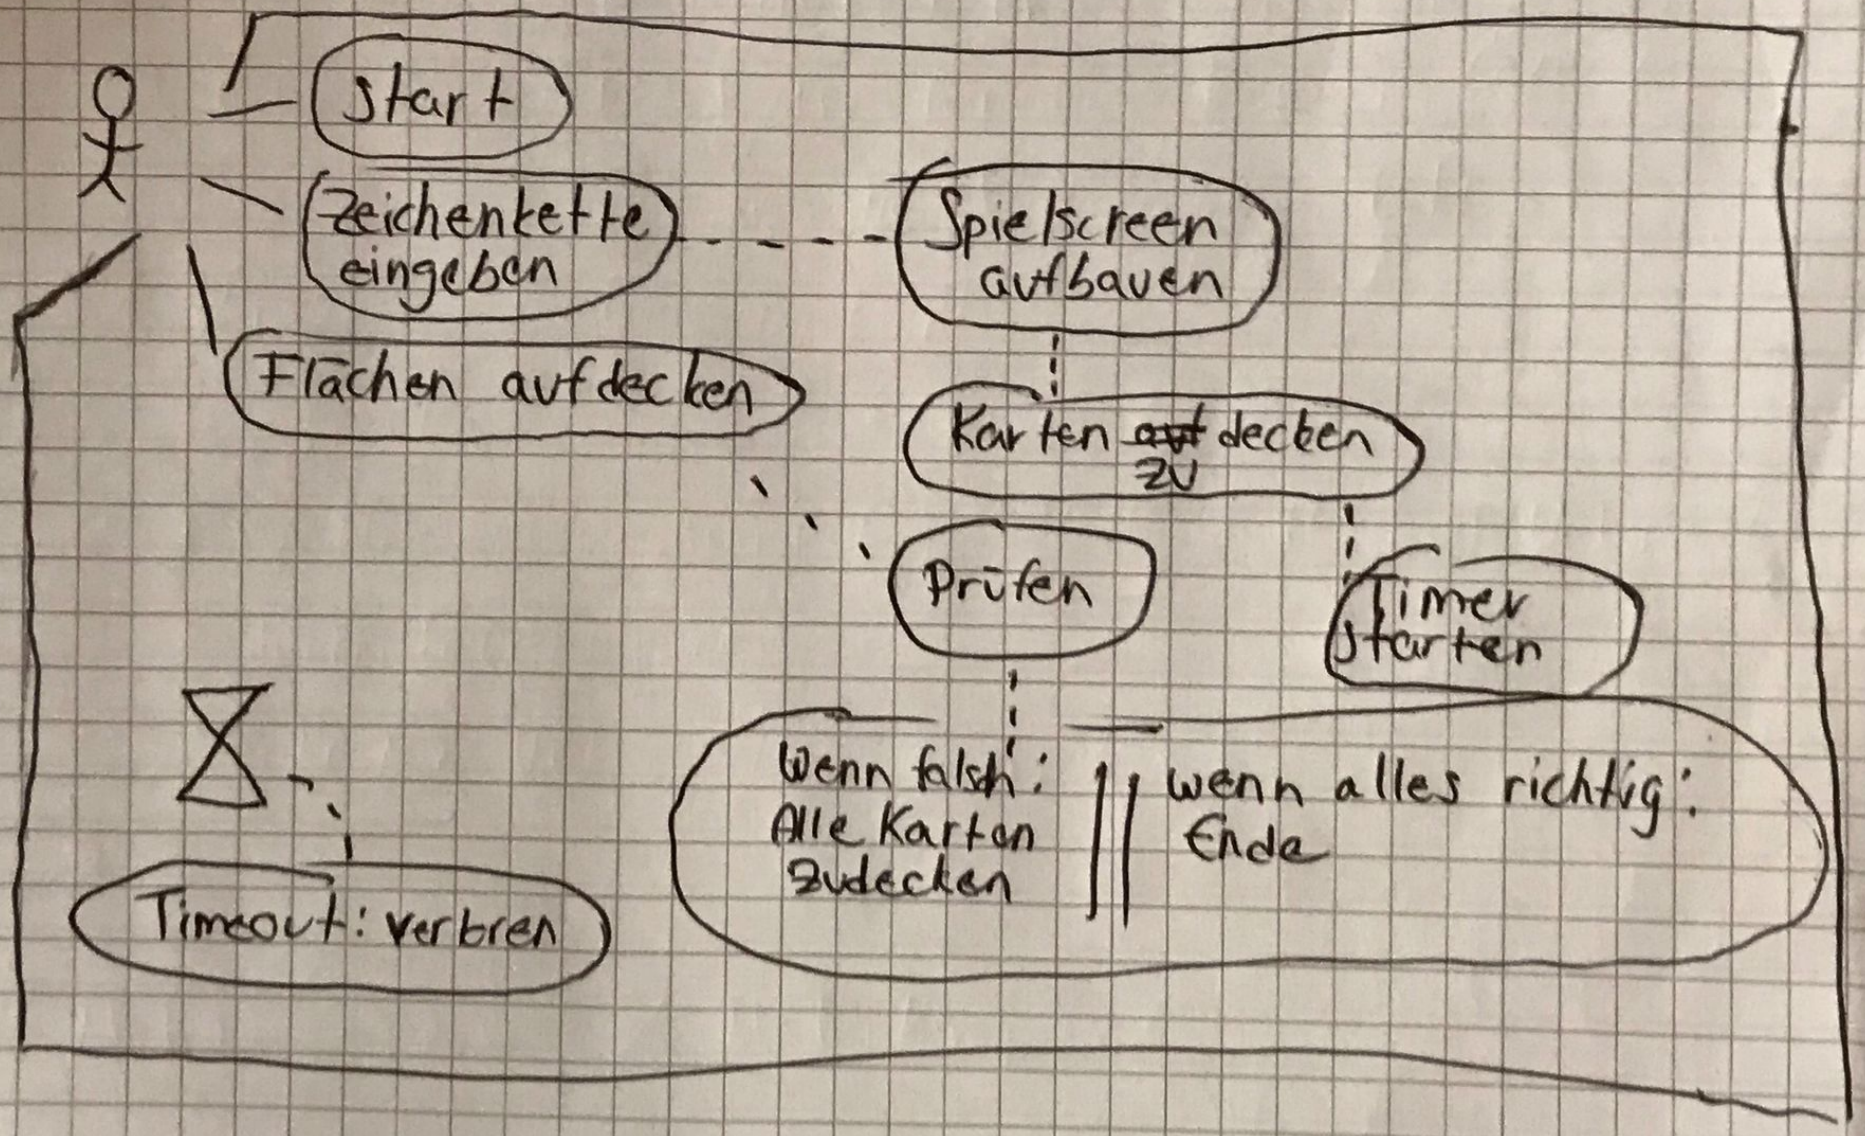 Start
Zeichenkette
eingeben
Spielscreen
aufbauen
Flächen aufdecken
Karten auf decken
zu
Prüfen
Timer
starten
Wenn falsch:
Alle Karten
zudecken
wenn alles richtig:
Ende
Timeout: verloren